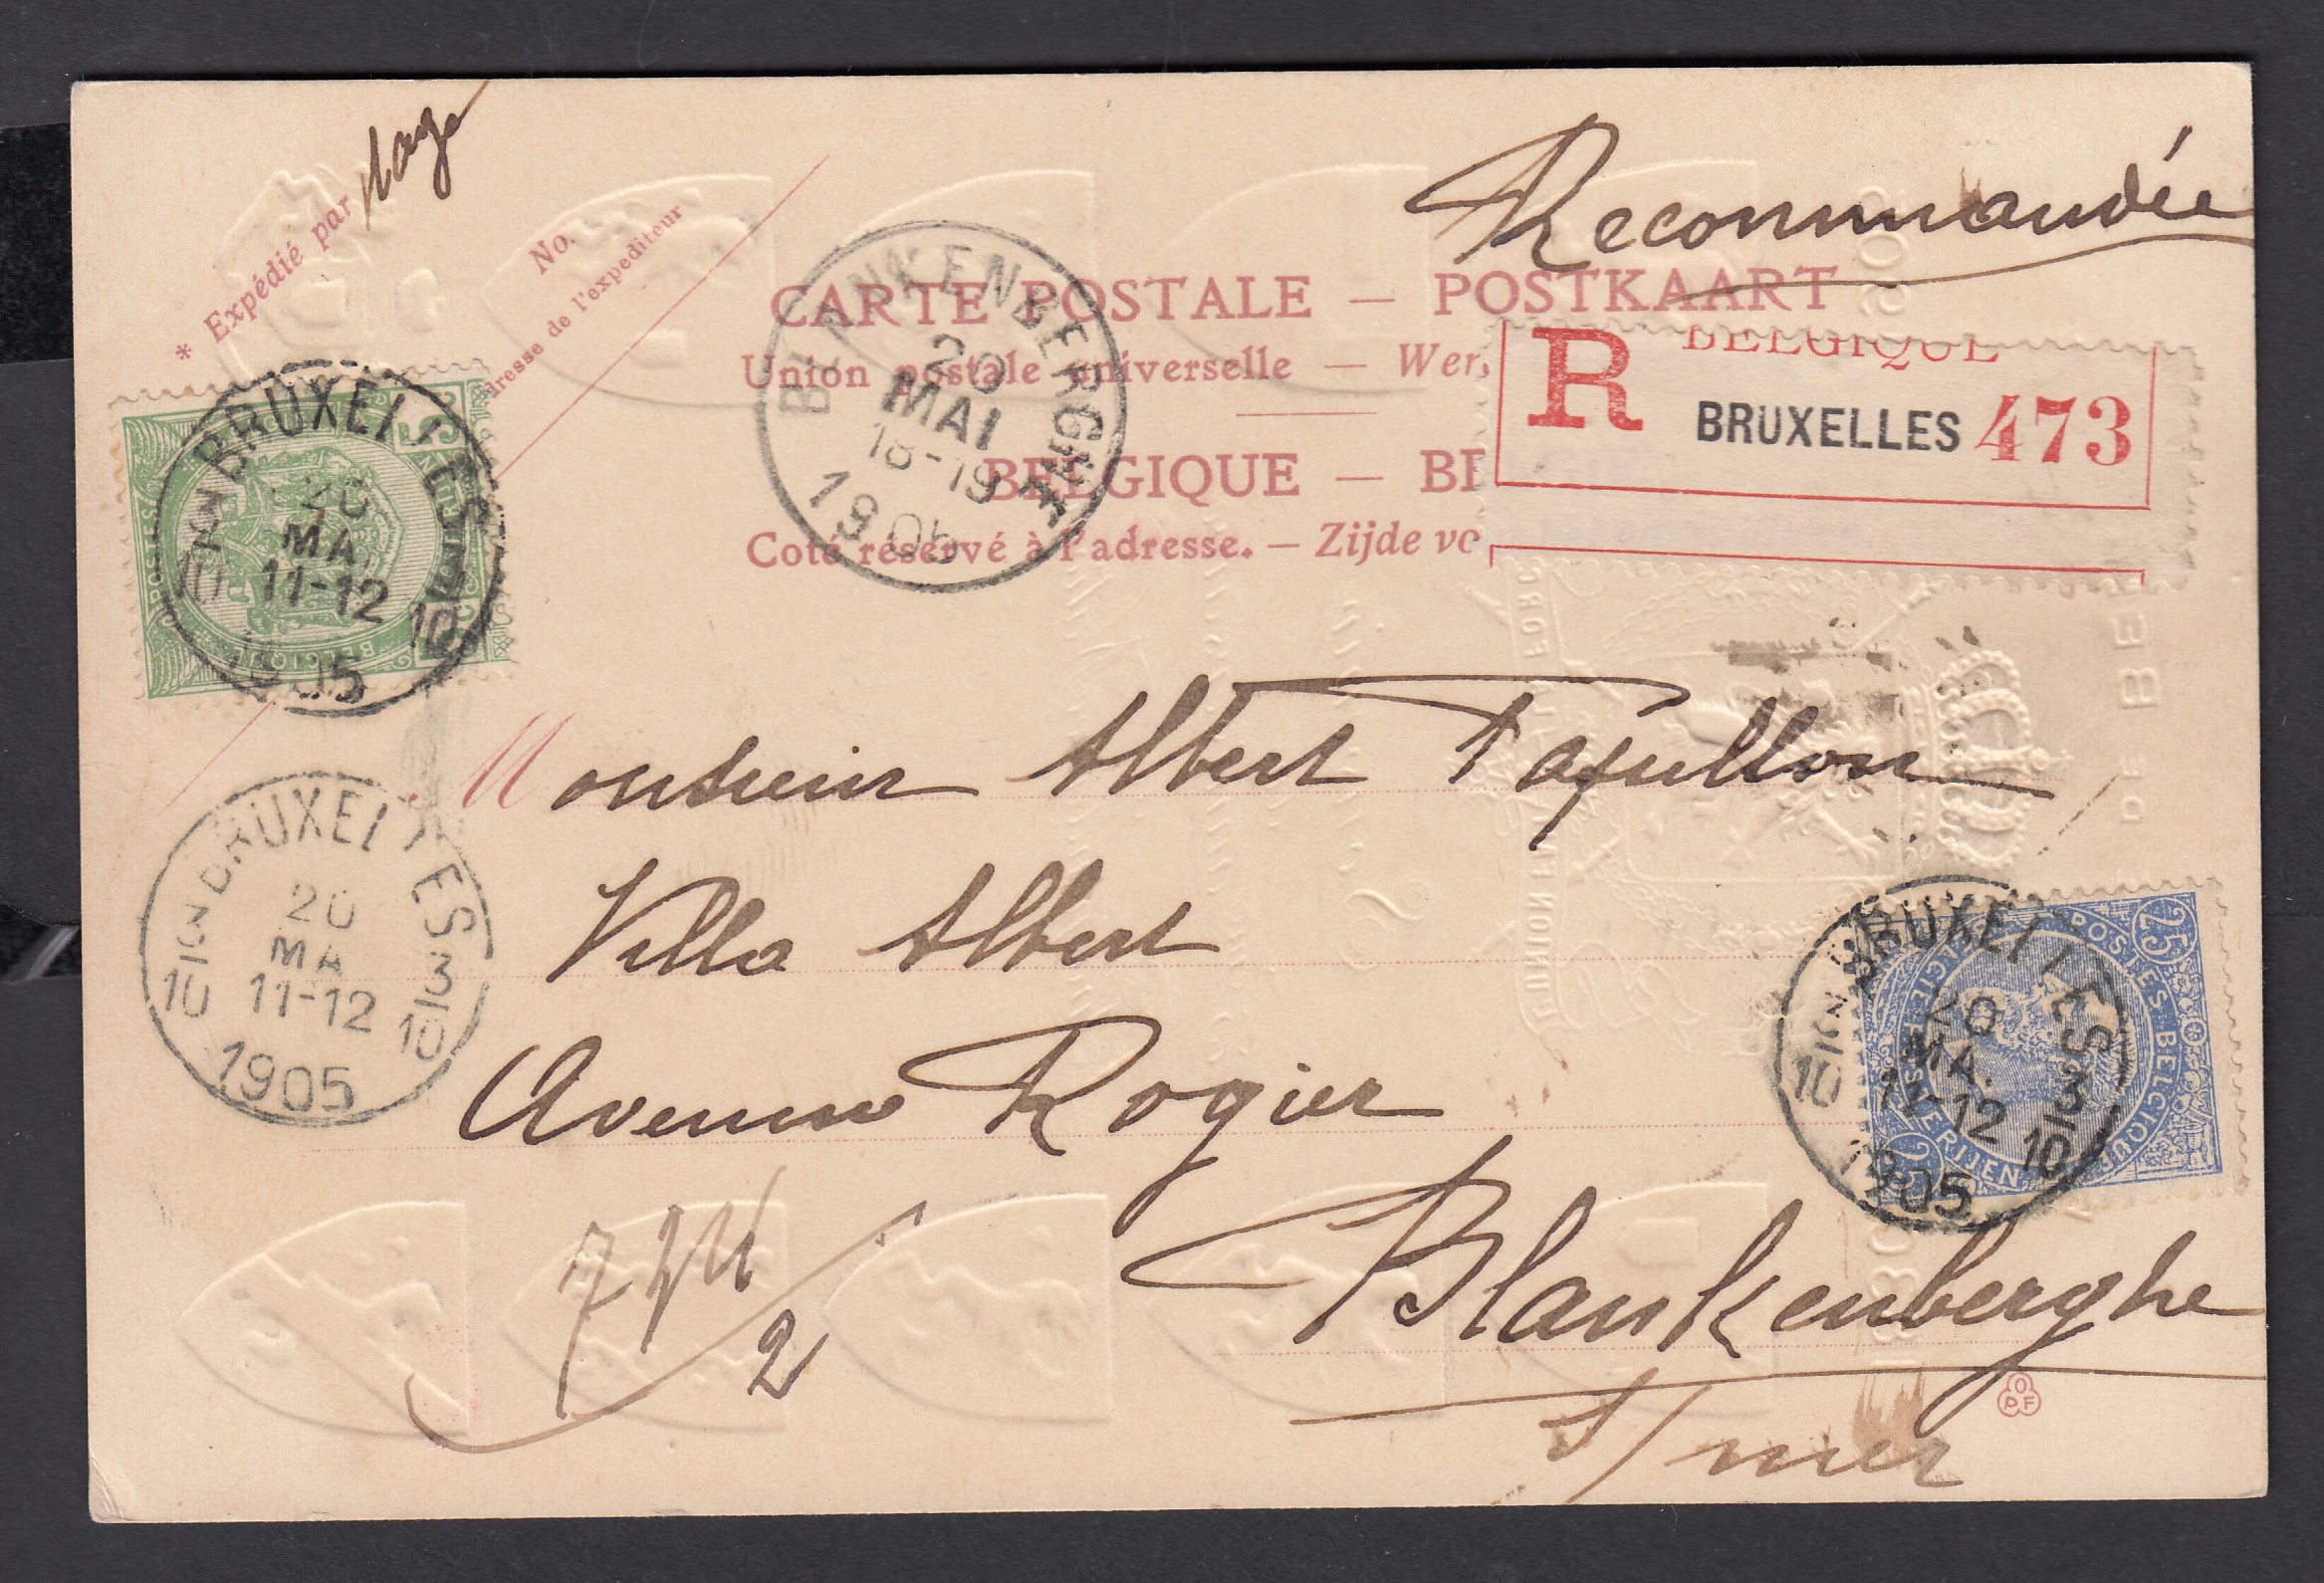 Recommandée
* Expédié par
No.
dresse de l'expediteur
CARTE POSTALE — POSTKAART
Union postale universelle — Wer
BELGIQUE — BE
Coté réservé à l'adresse. — Zijde vo
BLANKENBERGHE
20
MAI
18-19
1905
R BELGIQUE
BRUXELLES 473
BRUXELLES
20
MAI
11-12
1905
POSTES
BELGIQUE
Monsieur Albert
Villa Albert
Avenue Rogier
Blankenberghe
s/mer
BRUXELLES
20
MAI
11-12
10 10
1905
BRUXELLES
20
MAI
11-12
10 10
1905
25
POSTES BELGIQUE
2
OPF